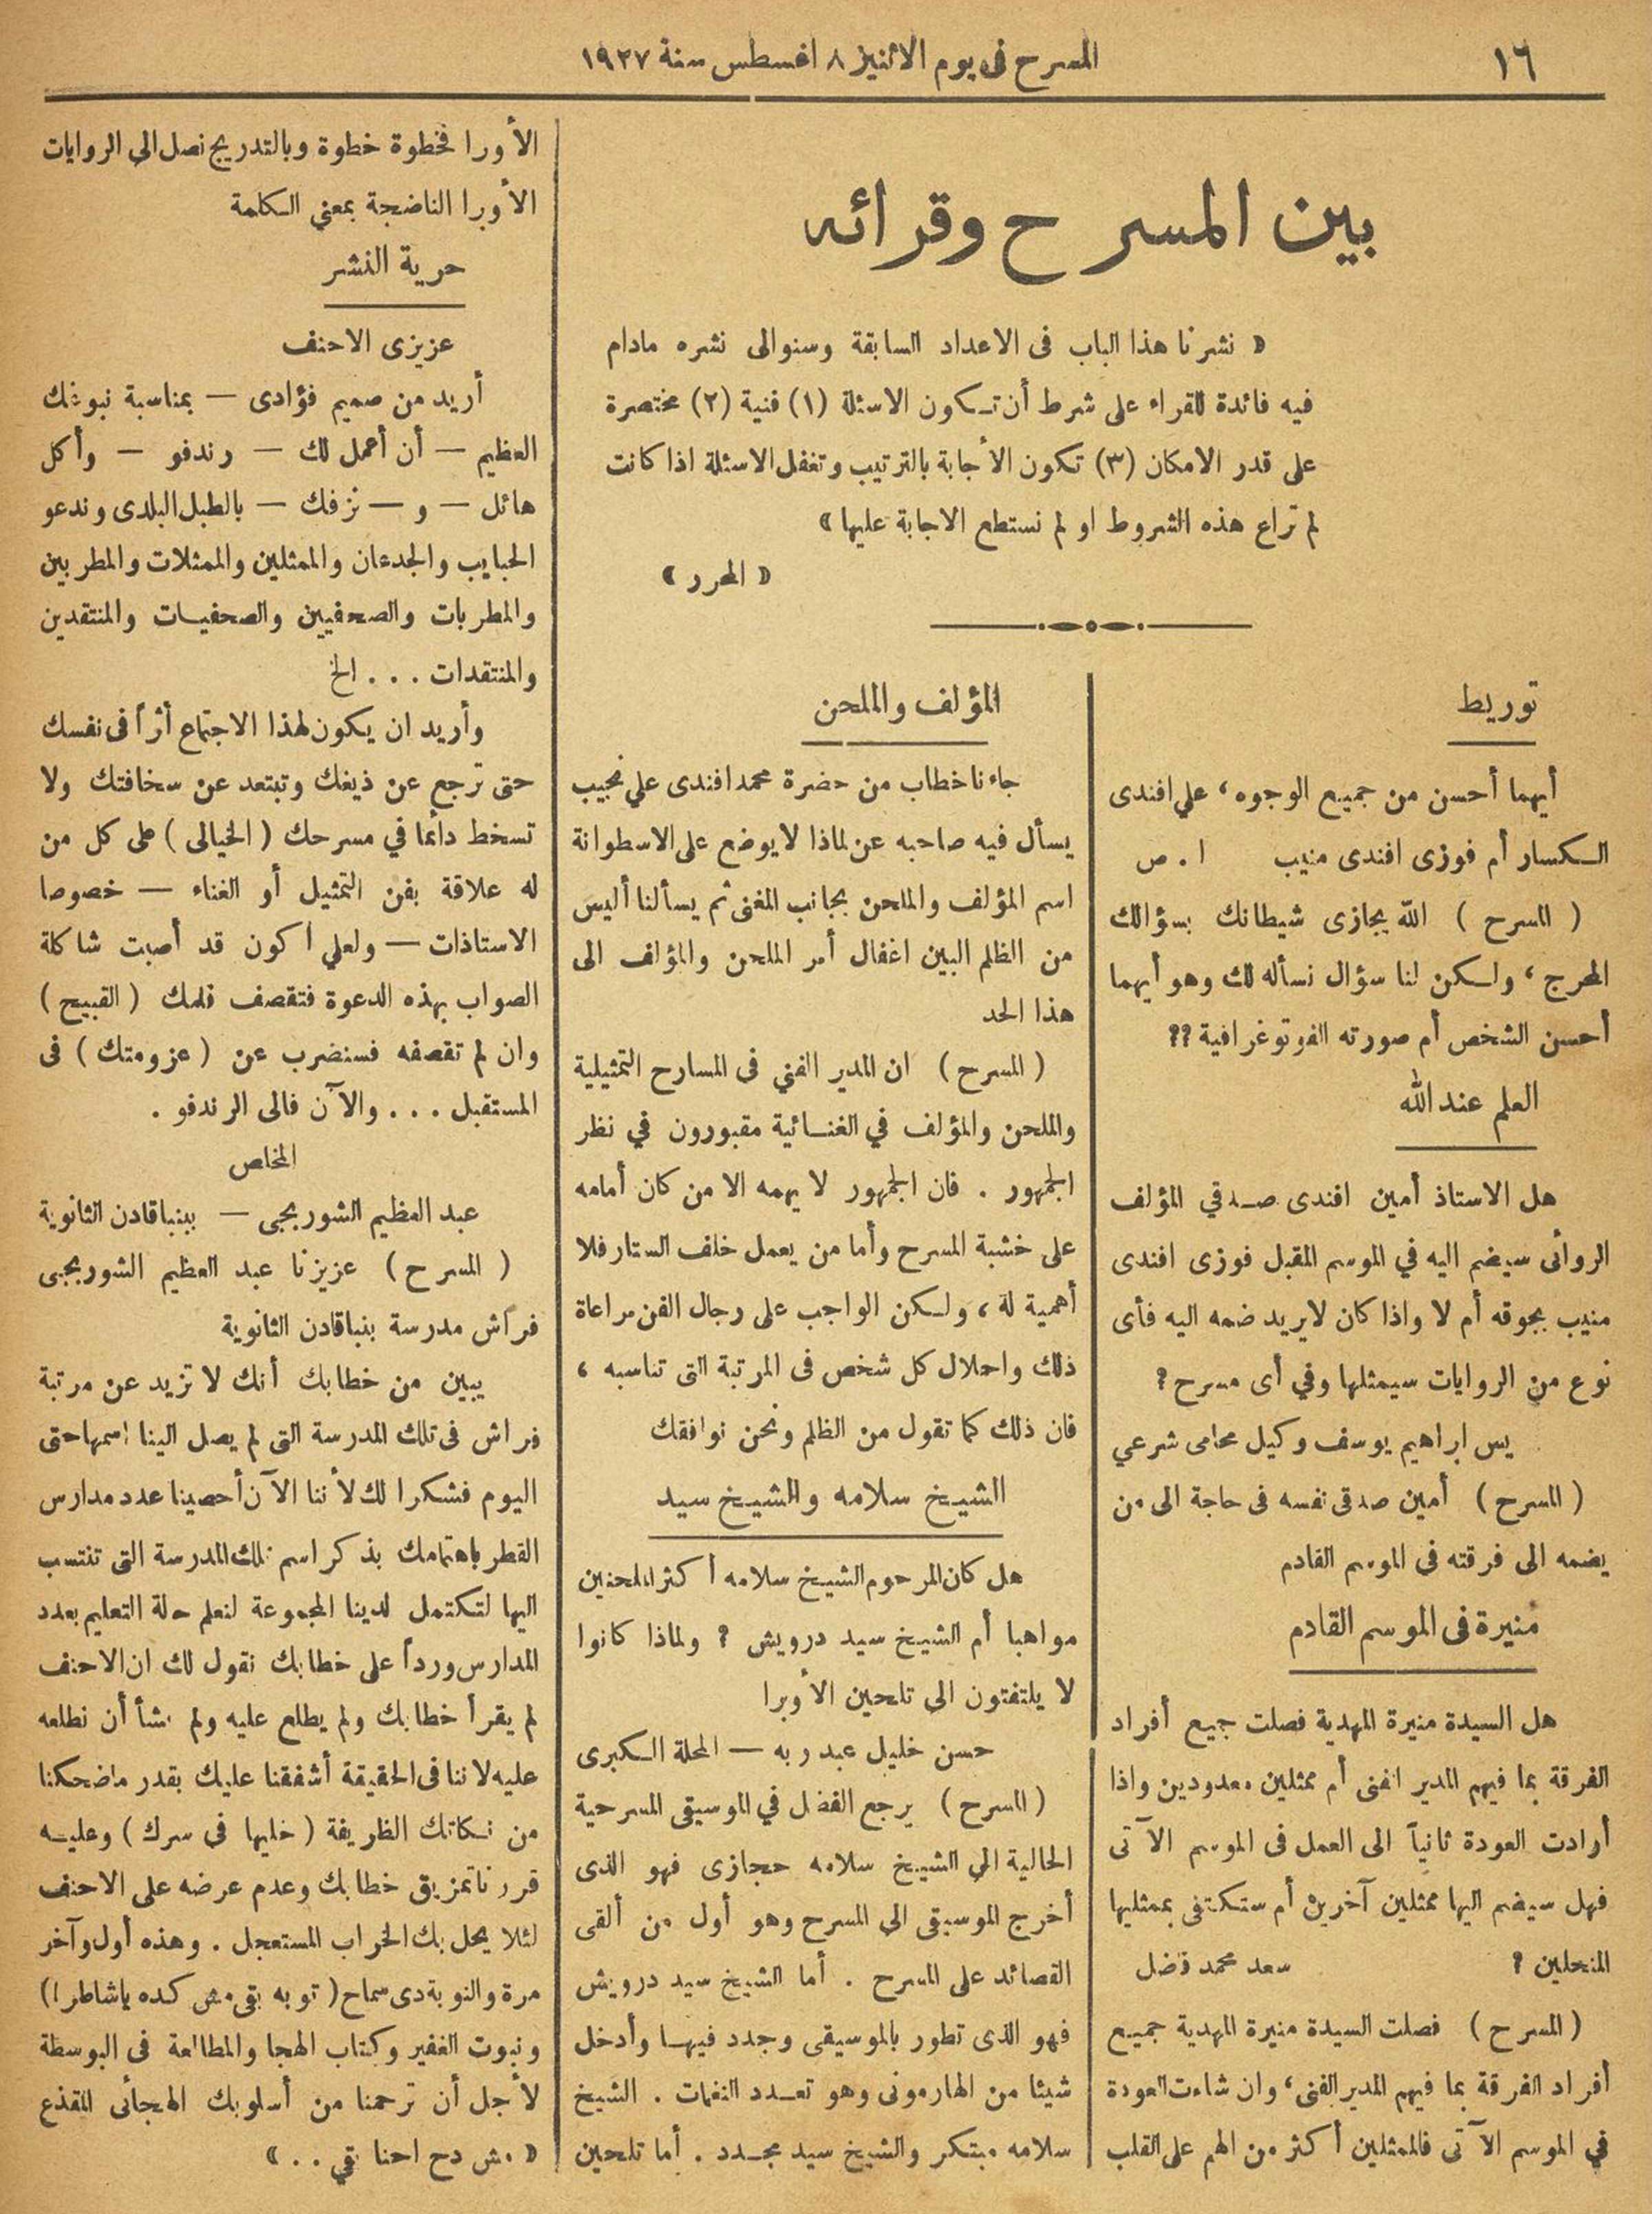 ١٦
المسرح فى يوم الاثنين ٨ اغسطس سنة ١٩٢٧
بين المسرح وقرائه
« نشرنا هذا الباب فى الاعداد السابقة وسنوالى نشره مادام
فيه فائدة للقراء على شرط أن تكون الاسئلة (١) فنية (٢) مختصرة
على قدر الامكان (٣) تكون الأجابة بالترتيب وتغفل الاسئلة اذا كانت
لم تراع هذه الشروط او لم نستطع الاجابة عليها »
« المحرر »
توريط
أيهما أحسن من جميع الوجوه، علي افندى
الكسار أم فوزى افندى منيب ا . ص
( المسرح ) الله يجازى شيطانك بسؤالك
المحرج ، ولكن لنا سؤال نسأله لك وهو أيهما
أحسن الشخص أم صورته الفوتوغرافية ؟؟
العلم عند الله
هل الاستاذ أمين افندى صدقي المؤلف
الروائى سيضم اليه في الموسم المقبل فوزى افندى
منيب بجوقه أم لا واذا كان لا يريد ضمه اليه فأى
نوع من الروايات سيمثلها وفي أى مسرح ؟
يس ابراهيم يوسف وكيل محامى شرعي
( المسرح ) أمين صدقى نفسه فى حاجة الى من
يضمه الى فرقته فى الموسم القادم
منيرة فى الموسم القادم
هل السيدة منيرة المهدية فصلت جميع أفراد
الفرقة بما فيهم المدير الفنى أم ممثلين معدودين واذا
أرادت العودة ثانياً الى العمل فى الموسم الآتى
فهل سيضم اليها ممثلين آخرين أم ستكتفى بممثليها
المنحلين ؟ سعد محمد فضل
( المسرح ) فصلت السيدة منيرة المهدية جميع
أفراد الفرقة بما فيهم المدير الفنى، وان شاءت العودة
في الموسم الآتى فالممثلين أكثر من الهم على القلب
المؤلف والملحن
جاءنا خطاب من حضرة محمد افندى علي نجيب
يسأل فيه صاحبه عن لماذا لا يوضع على الاسطوانة
اسم المؤلف والملحن بجانب المغنى ثم يسألنا أليس
من الظلم البين اغفال أمر الملحن والمؤلف الى
هذا الحد
( المسرح ) ان المدير الفني فى المسارح التمثيلية
والملحن والمؤلف في الغنائية مقبورون في نظر
الجمهور . فان الجمهور لا يهمه الا من كان أمامه
على خشبة المسرح وأما من يعمل خلف الستار فلا
أهمية لة ، ولكن الواجب على رجال الفن مراعاة
ذلك واحلال كل شخص فى المرتبة التى تناسبه ،
فان ذلك كما تقول من الظلم ونحن نوافقك
الشيخ سلامه والشيخ سيد
هل كان المرحوم الشيخ سلامه أكثر الملحنين
مواهبا أم الشيخ سيد درويش ؟ ولماذا كانوا
لا يلتفتون الى تلحين الأوبرا
حسن خليل عبد ربه — المحلة الكبرى
( المسرح ) يرجع الفضل في الموسيقى المسرحية
الحالية الي الشيخ سلامه حجازى فهو الذى
أخرج الموسيقى الي المسرح وهو أول من ألقى
القصائد على المسرح . أما الشيخ سيد درويش
فهو الذى تطور بالموسيقى وجدد فيها وأدخل
شيئا من الهارمونى وهو تعدد النغمات . الشيخ
سلامه مبتكر والشيخ سيد مجدد . أما تلحين
الأورا فخطوة خطوة وبالتدريج نصل الى الروايات
الأوبرا الناضجة بمعنى الكلمة
حرية النشر
عزيزى الاحنف
أريد من صميم فؤادى — بمناسبة نبوغك
العظيم — أن أعمل لك — رندفو — وأكل
هائل — و — نزفك — بالطبل البلدى وندعو
الحبايب والجدعان والممثلين والممثلات والمطربين
والمطربات والصحفيين والصحفيات والمنتقدين
والمنتقدات . . . الخ
وأريد ان يكون لهذا الاجتماع أثراً فى نفسك
حتى ترجع عن ذيغك وتبتعد عن سخافتك ولا
تسخط دائما في مسرحك ( الخيالى ) على كل من
له علاقة بفن التمثيل أو الغناء — خصوصا
الاستاذات — ولعلي أكون قد أصبت شاكلة
الصواب بهذه الدعوة فتقصف قلمك ( القبيح )
وان لم تقصفه فسنضرب عن ( عزومتك ) فى
المستقبل . . . والآن فالى الرندفو .
المخلص
عبد العظيم الشوربجى — ببنباقادن الثانوية
( المسرح ) عزيزنا عبد العظيم الشوربجى
فراش مدرسة بنباقادن الثانوية
يبين من خطابك أنك لا تزيد عن مرتبة
فراش فى تلك المدرسة التى لم يصل الينا اسمها حتى
اليوم فشكرا لك لأننا الآن أحصينا عدد مدارس
القطر باهتمامك بذكر اسم تلك المدرسة التى تنتسب
اليها لتكتمل لدينا المجموعة لنعلم حلة التعليم بعدد
المدارس ورداً على خطابك نقول لك ان الاحنف
لم يقرأ خطابك ولم يطلع عليه ولم نشأ أن نطلعه
عليه لاننا فى الحقيقة أشفقنا عليك بقدر ماضحكنا
من نكاتك الظريفة ( خليها فى سرك ) وعليه
قررنا تمزيق خطابك وعدم عرضه على الاحنف
لئلا يحل بك الخراب المستعجل . وهذه أول وآخر
مرة والنوبة دى سماح ( توبه بقى مش كده ياشاطر !)
ونبوت الغفير وكتاب الهجا والمطالعة فى البوسطة
لأجل أن ترحمنا من أسلوبك الهجائى المقذع
« مش دح احنا قي . . »